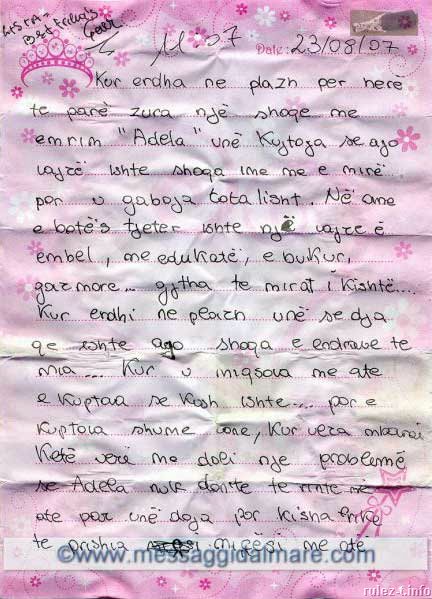 Best friends
11.07
Date: 23/08/07
Kur erdha ne plazh per here
te parë zura një shoqe me
emrim "Adela" unë Kujtoja se ajo
vajzë ishte shoqa ime me e mirë
por u gaboja totalisht. Në ane
e botë's tjeter ishte një vajze ë
embel, me edukatë, e bukur,
gazmore... gjtha te mirat i kishtë...
Kur erdhi ne plazh unë se dja
qe ishte ajo shoqa e endrrave te
mia... Kur u miqsova me ate
e kuptova se Kush ishte.... por e
kuptova shume vone, Kur vera mbaroi
Ketë verë me doli nje problemë
se Adela nuk donte te rrinte më
ate por unë doja por kisha
te prishja miqësi me atë
©www.messaggidalmare.com
rulez-t.info